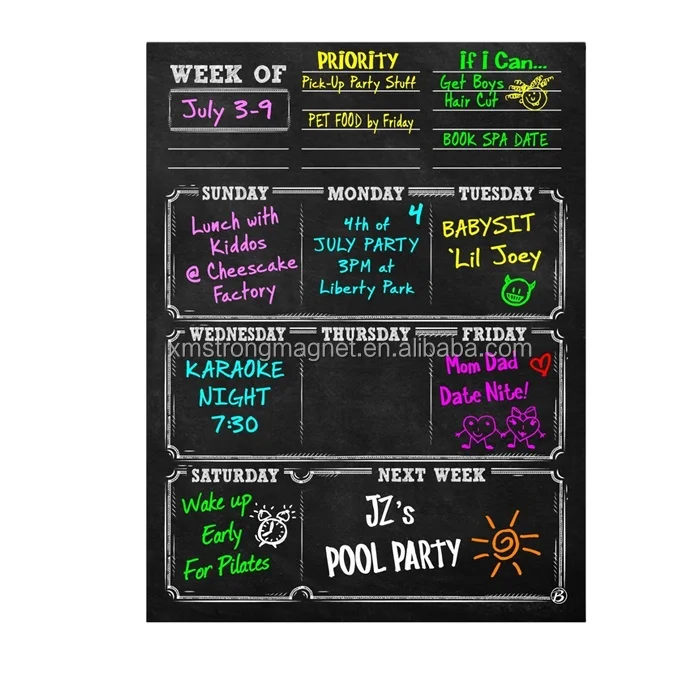 WEEK OF
July 3-9
PRIORITY
Pick-Up Party Stuff
PET FOOD by Friday
if i Can...
Get Boys
Hair Cut
BOOK SPA DATE
SUNDAY
Lunch with
Kiddos
@ Cheescake
Factory
MONDAY
4
4th of
JULY PARTY
3PM at
Liberty Park
TUESDAY
BABYSIT
'Lil Joey
WEDNESDAY
KARAOKE
NIGHT
7:30
THURSDAY
FRIDAY
Mom Dad
Date Nite!
xmstrongmagnet.en.alibaba.com
SATURDAY
Wake up
Early
For Pilates
NEXT WEEK
JZ's
POOL PARTY
B